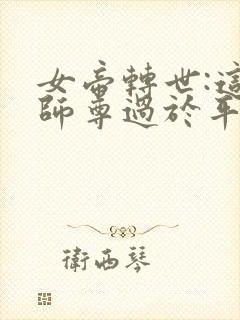 女帝轉世:這
師尊過於平
衛西琴